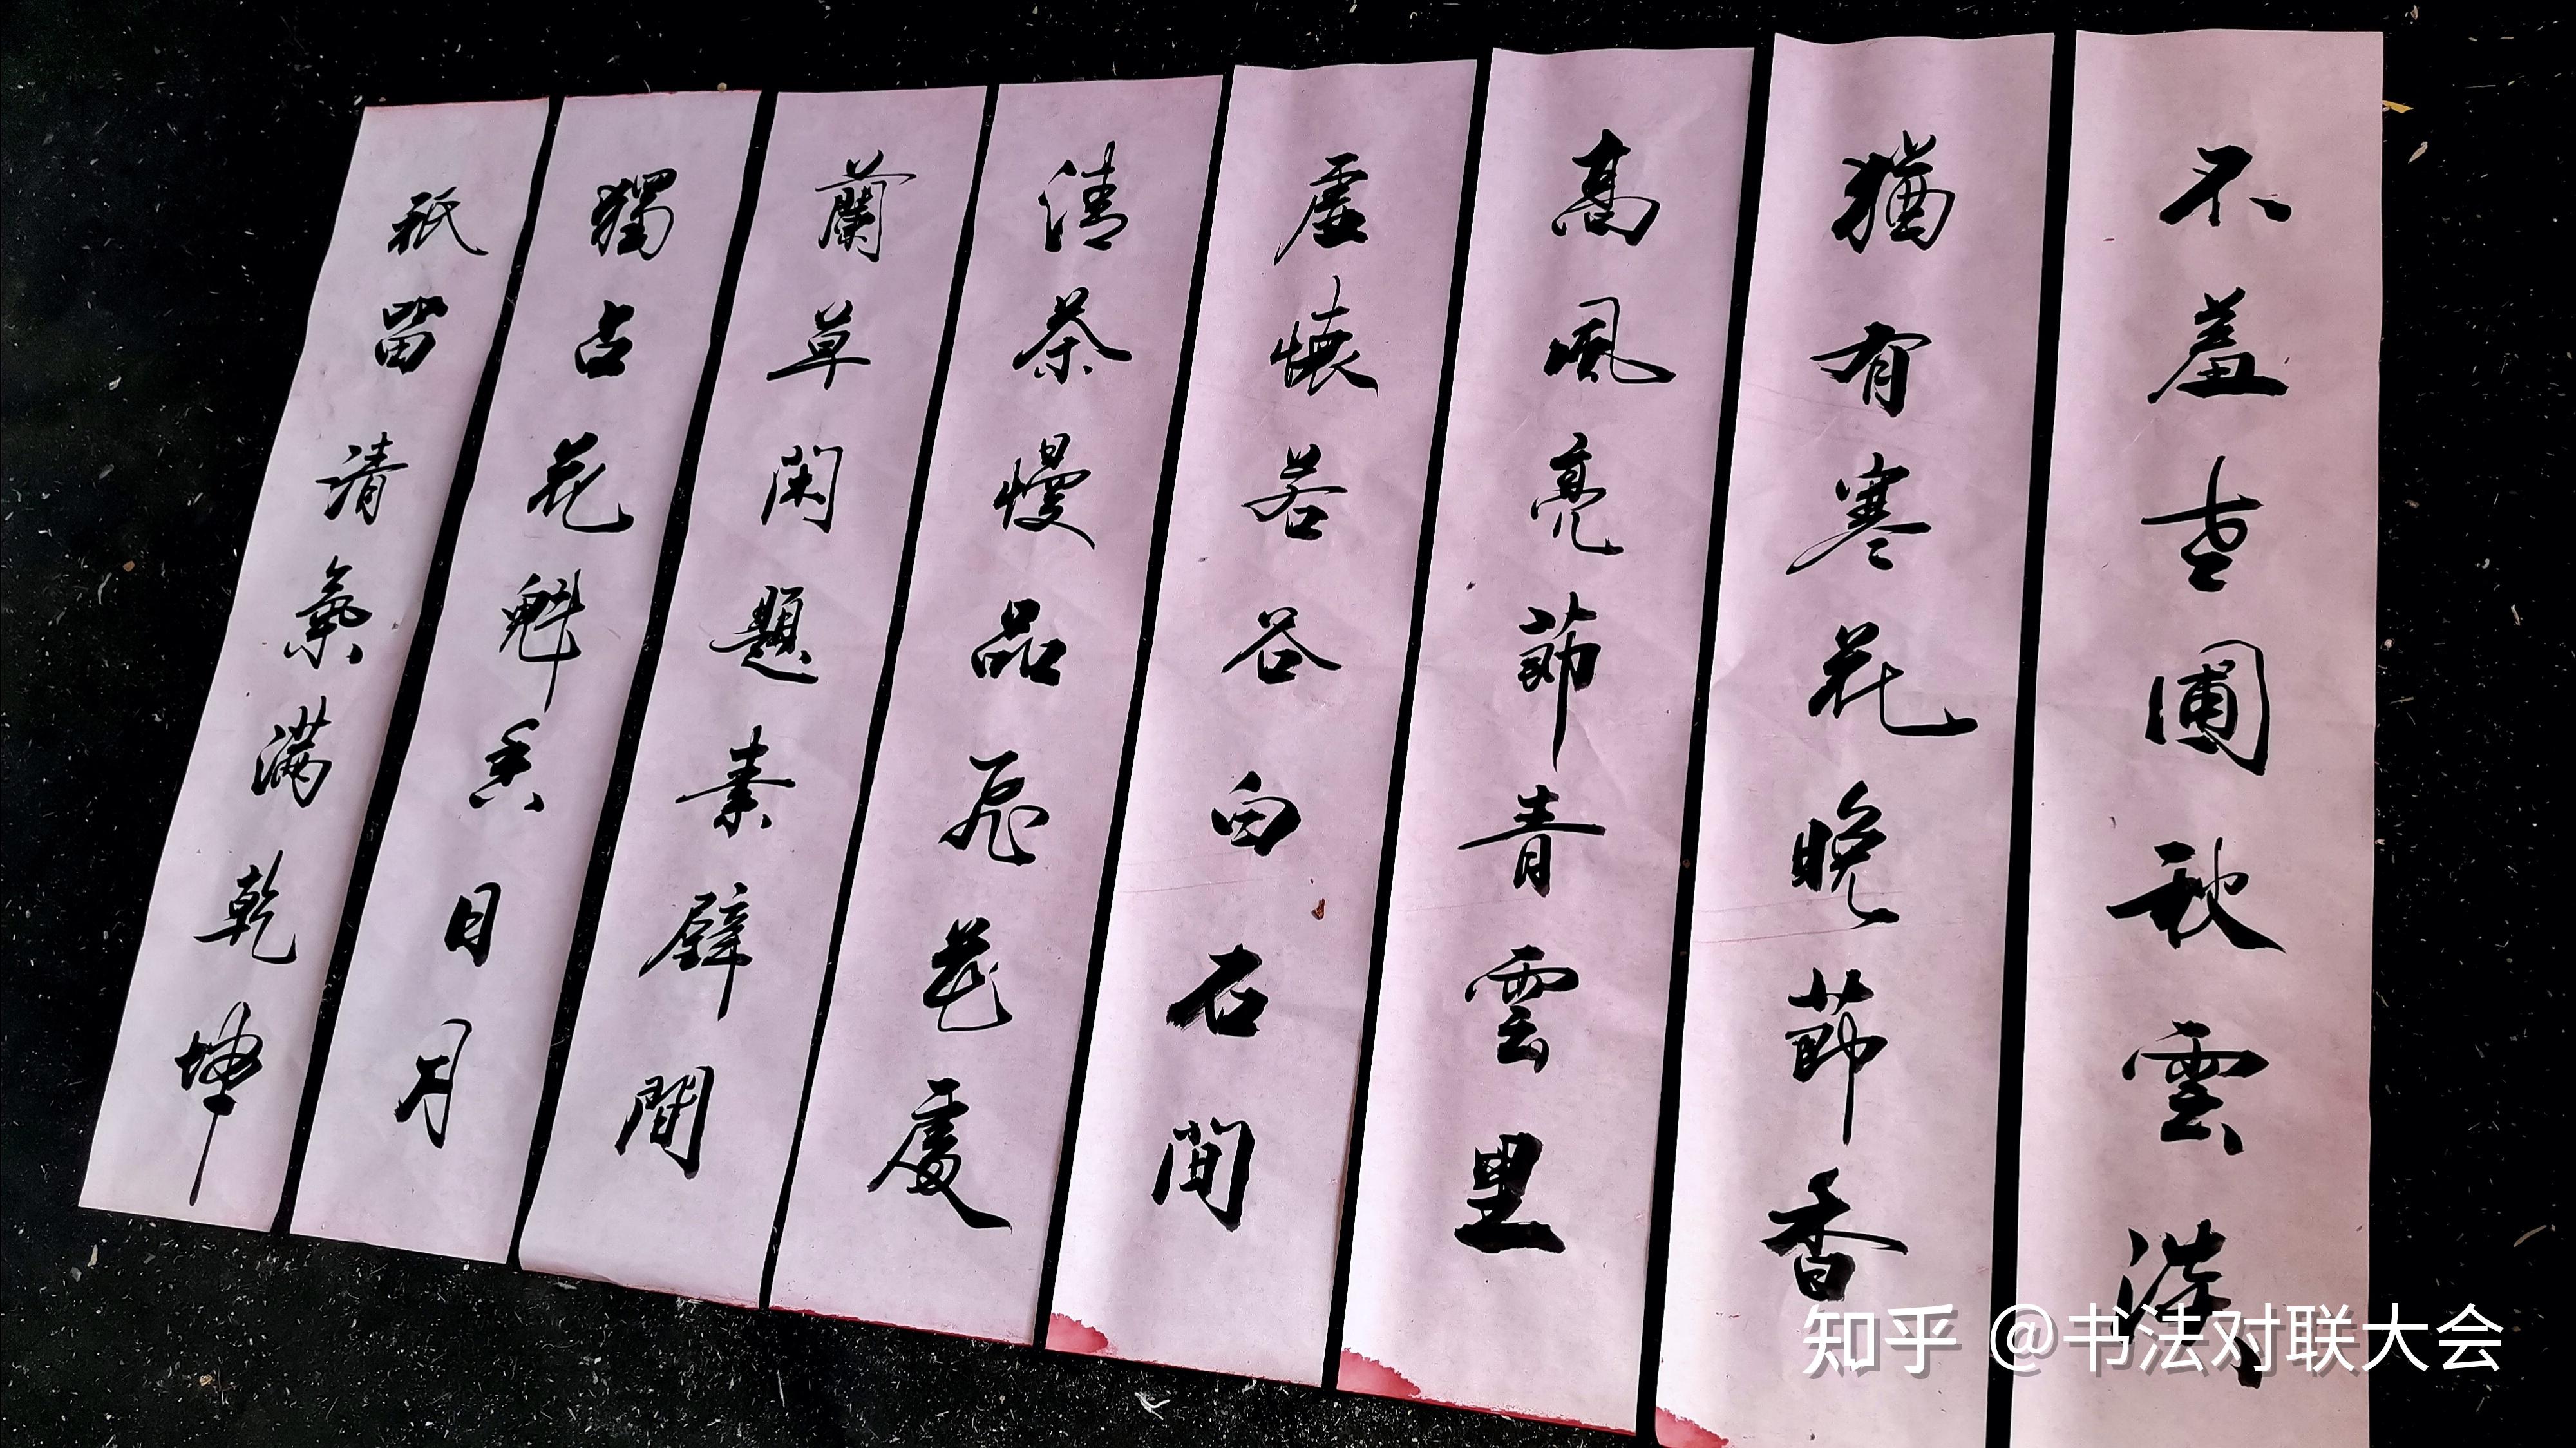 不羞老圃秋雲淡
猶有寒花晚節香
高風亮節青雲里
虛懷若谷白石間
清茶慢品飛花處
蘭草閑題素壁間
獨占花魁香日月
祇留清氣滿乾坤
知乎 @书法对联大会